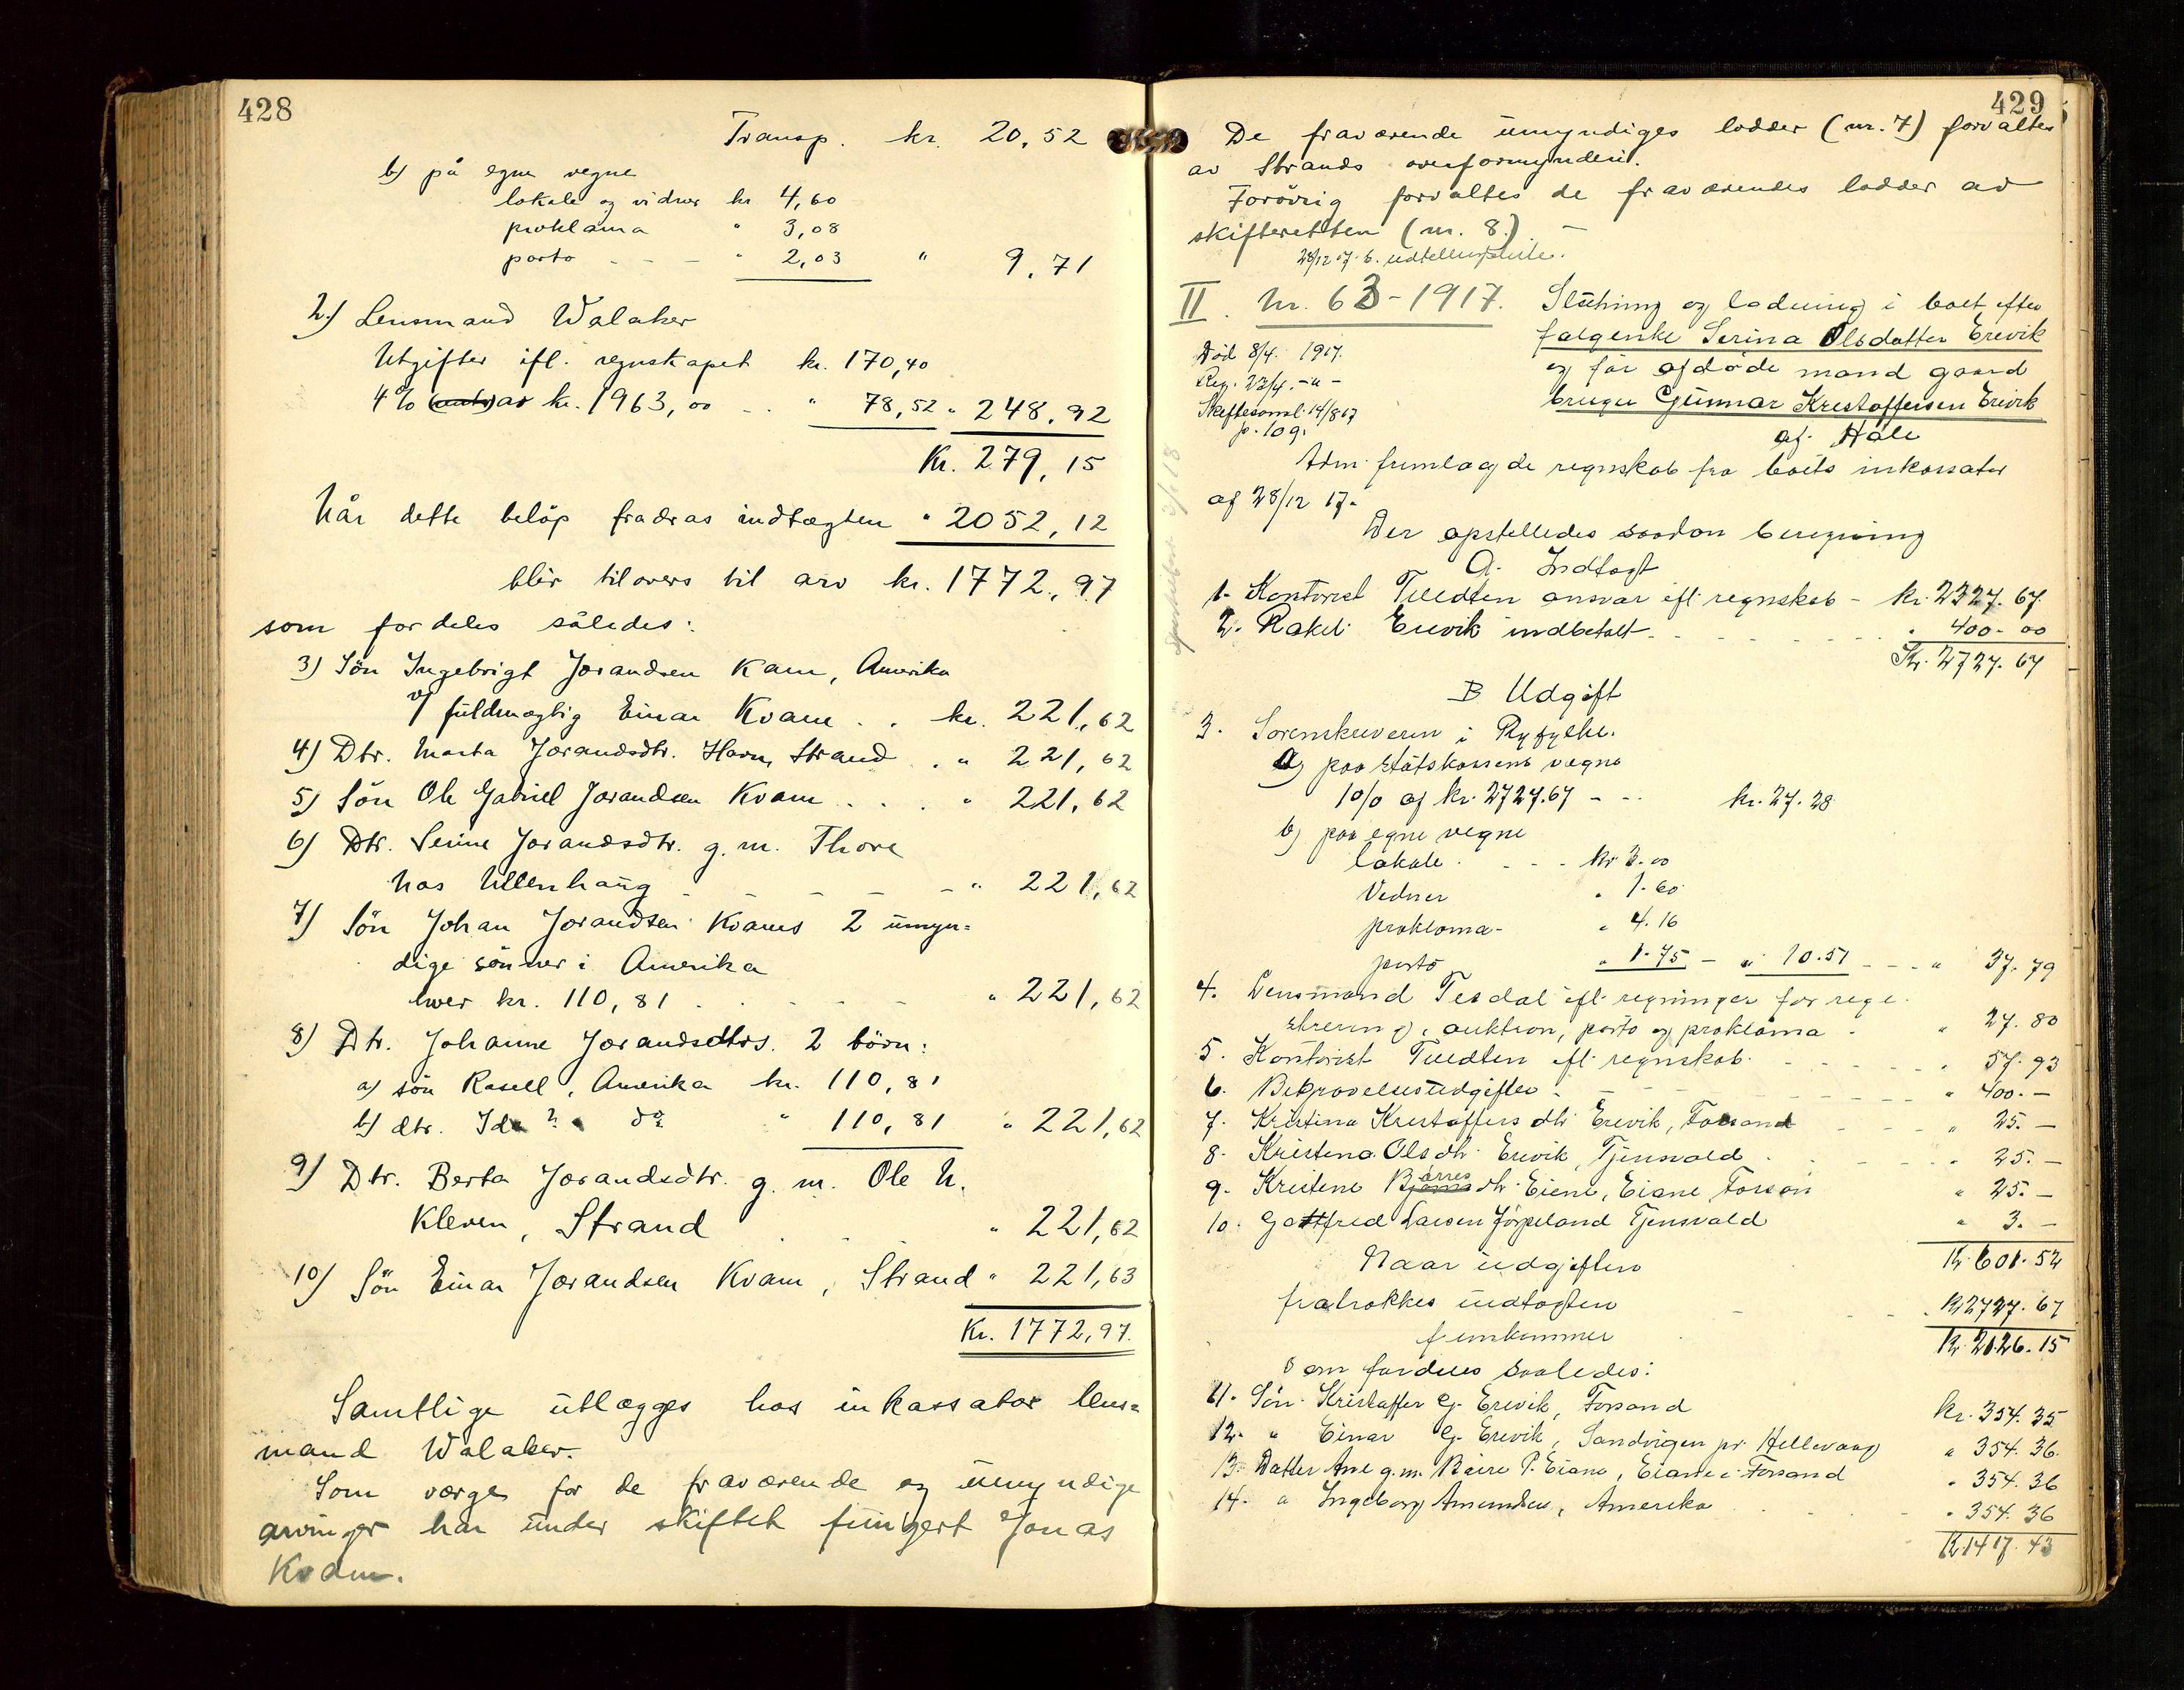 428
Transp. kr. 20,52
b) på egne vegne
lokale og vidner kr 4,60
proklama " 3,08
porto - - - " 2,03 " 9,71
2.) Lensmand Walaker
Utgifter ifl. regnskapet kr. 170,40
4% av kr. 1963,00 - . . " 78,52 " 248,92
Kr. 279,15
Når dette beløp fradras indtægten " 2052,12
blir tilovers til arv kr. 1772,97
som fordeles således:
3) Søn Ingebrigt Jorandsen Kam, Amerika
v/ fuldmægtig Einar Kvam . . kr. 221,62
4) Dtr. Marta Jorandsdtr. Havn, Strand . " 221,62
5) Søn Ole Gabriel Jorandsen Kvam . . . " 221,62
6) Dtr. Serine Jorandsdtr. g. m. Thore
has Ullenhaug - - - - - " 221,62
7) Søn Johan Jorandsen Kvams 2 umyn=
dige sønner i Amerika
hver kr. 110,81 . - - - - " 221,62
8) Dtr. Johanne Jorandsdtrs. 2 børn:
a) søn Rasell, Amerika kr. 110,81
b) dtr. Ida ? do " 110,81 " 221,62
9) Dtr. Berta Jorandsdtr. g. m. Ole N.
Kleven, Strand . . . " 221,62
10) Søn Einar Jorandsen Kvam, Strand " 221,63
Kr. 1772,97.
Samtlige utlægges hos inkassator lens=
mand Walaker.
Som verge for de fraværende og umyndige
arvinger har under skiftet fungert Jonas
Kvam.
429
De fraværende umyndiges lodder (nr. 7) forvaltes
av Strands overformynderi.
Forøvrig forvaltes de fraværendes lodder av
skifteretten (nr. 8.) -
28/12 17. b.
II. Nr. 63-1917. Slutning og lodning i boet efter
Død 8/4. 1917.
følgenke Serina Olsdatter Erevik
Reg. 23/4. -"-
og før afdøde mand gaard
Skiftesaml. 14/8 17
bruger Gunnar Kristoffersen Erevik
p. 109.
af Høle
Adm. fremlagde regnskab fra boets inkassator
af 28/12 17.
Der opstilledes saadan beregning
A. Indtægt
1. Kontorist Tvedten ansvar efl. regnskab - kr. 2327.67.
2. Rakel Erevik indbetalt - . . . . " 400.00
Kr. 2727.67
B Udgift
3. Sorenskriveren i Ryfylke.
a) paa statskassens vegne
1% af kr. 2727.67 - - . kr. 27.28
b) paa egne vegne
lokale . - - . kr 3.00
Vidner " 1.60
proklama - " 4.16
porto " 1.75 - " 10.51 - - - " 37.79
4. Lensmand Tesdal efl. regninger for regi-
strering, auktion, porto og proklama . " 27.80
5. Kontorist Tvedten efl. regnskab . - - - - " 57.93
6. Begravelsesudgifter . - - - - - - " 400.-
7. Kristina Kristoffersdtr Erevik, Forsand - - - " 25.-
8. Kristena Olsdtr. Erevik, Tjensvold . . - - - " 25.-
9. Kristene Børresdtr. Eiene, Eiane Forsan " 25.-
10. Gottfred Larsen Jørpeland Tjensvold " 3.-
Naar udgiften Kr. 601.52
fratrækkes indtægten - - - Kr 2727.67
fremkommer Kr. 2126.15
som fordeles saaledes:
11. Søn Kristoffer G. Erevik, Forsand kr. 354.35
12. " Einar G. Erevik, Sandvigen pr. Hellevaag " 354.36.
13. Datter Ane g.m. Børre P. Eiane, Eiane i Forsand " 354.36
14. " Ingeborg Amundsen, Amerika . . . - " 354.36
Kr. 1417.43